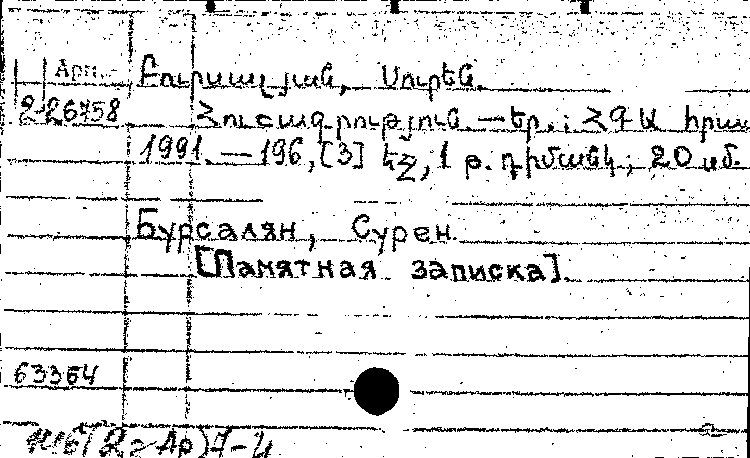 Арм. Բուրսալյան, Սուրեն.
2-26758 Հուշագրություն. — Եր.: ՀԳԱ հրատ
1991. — 196, [3] էջ, 1 թ. դիմանկ; 20 սմ.
Бурсалян, Сурен.
[Памятная записка].
63364
(2=Ар)7-4